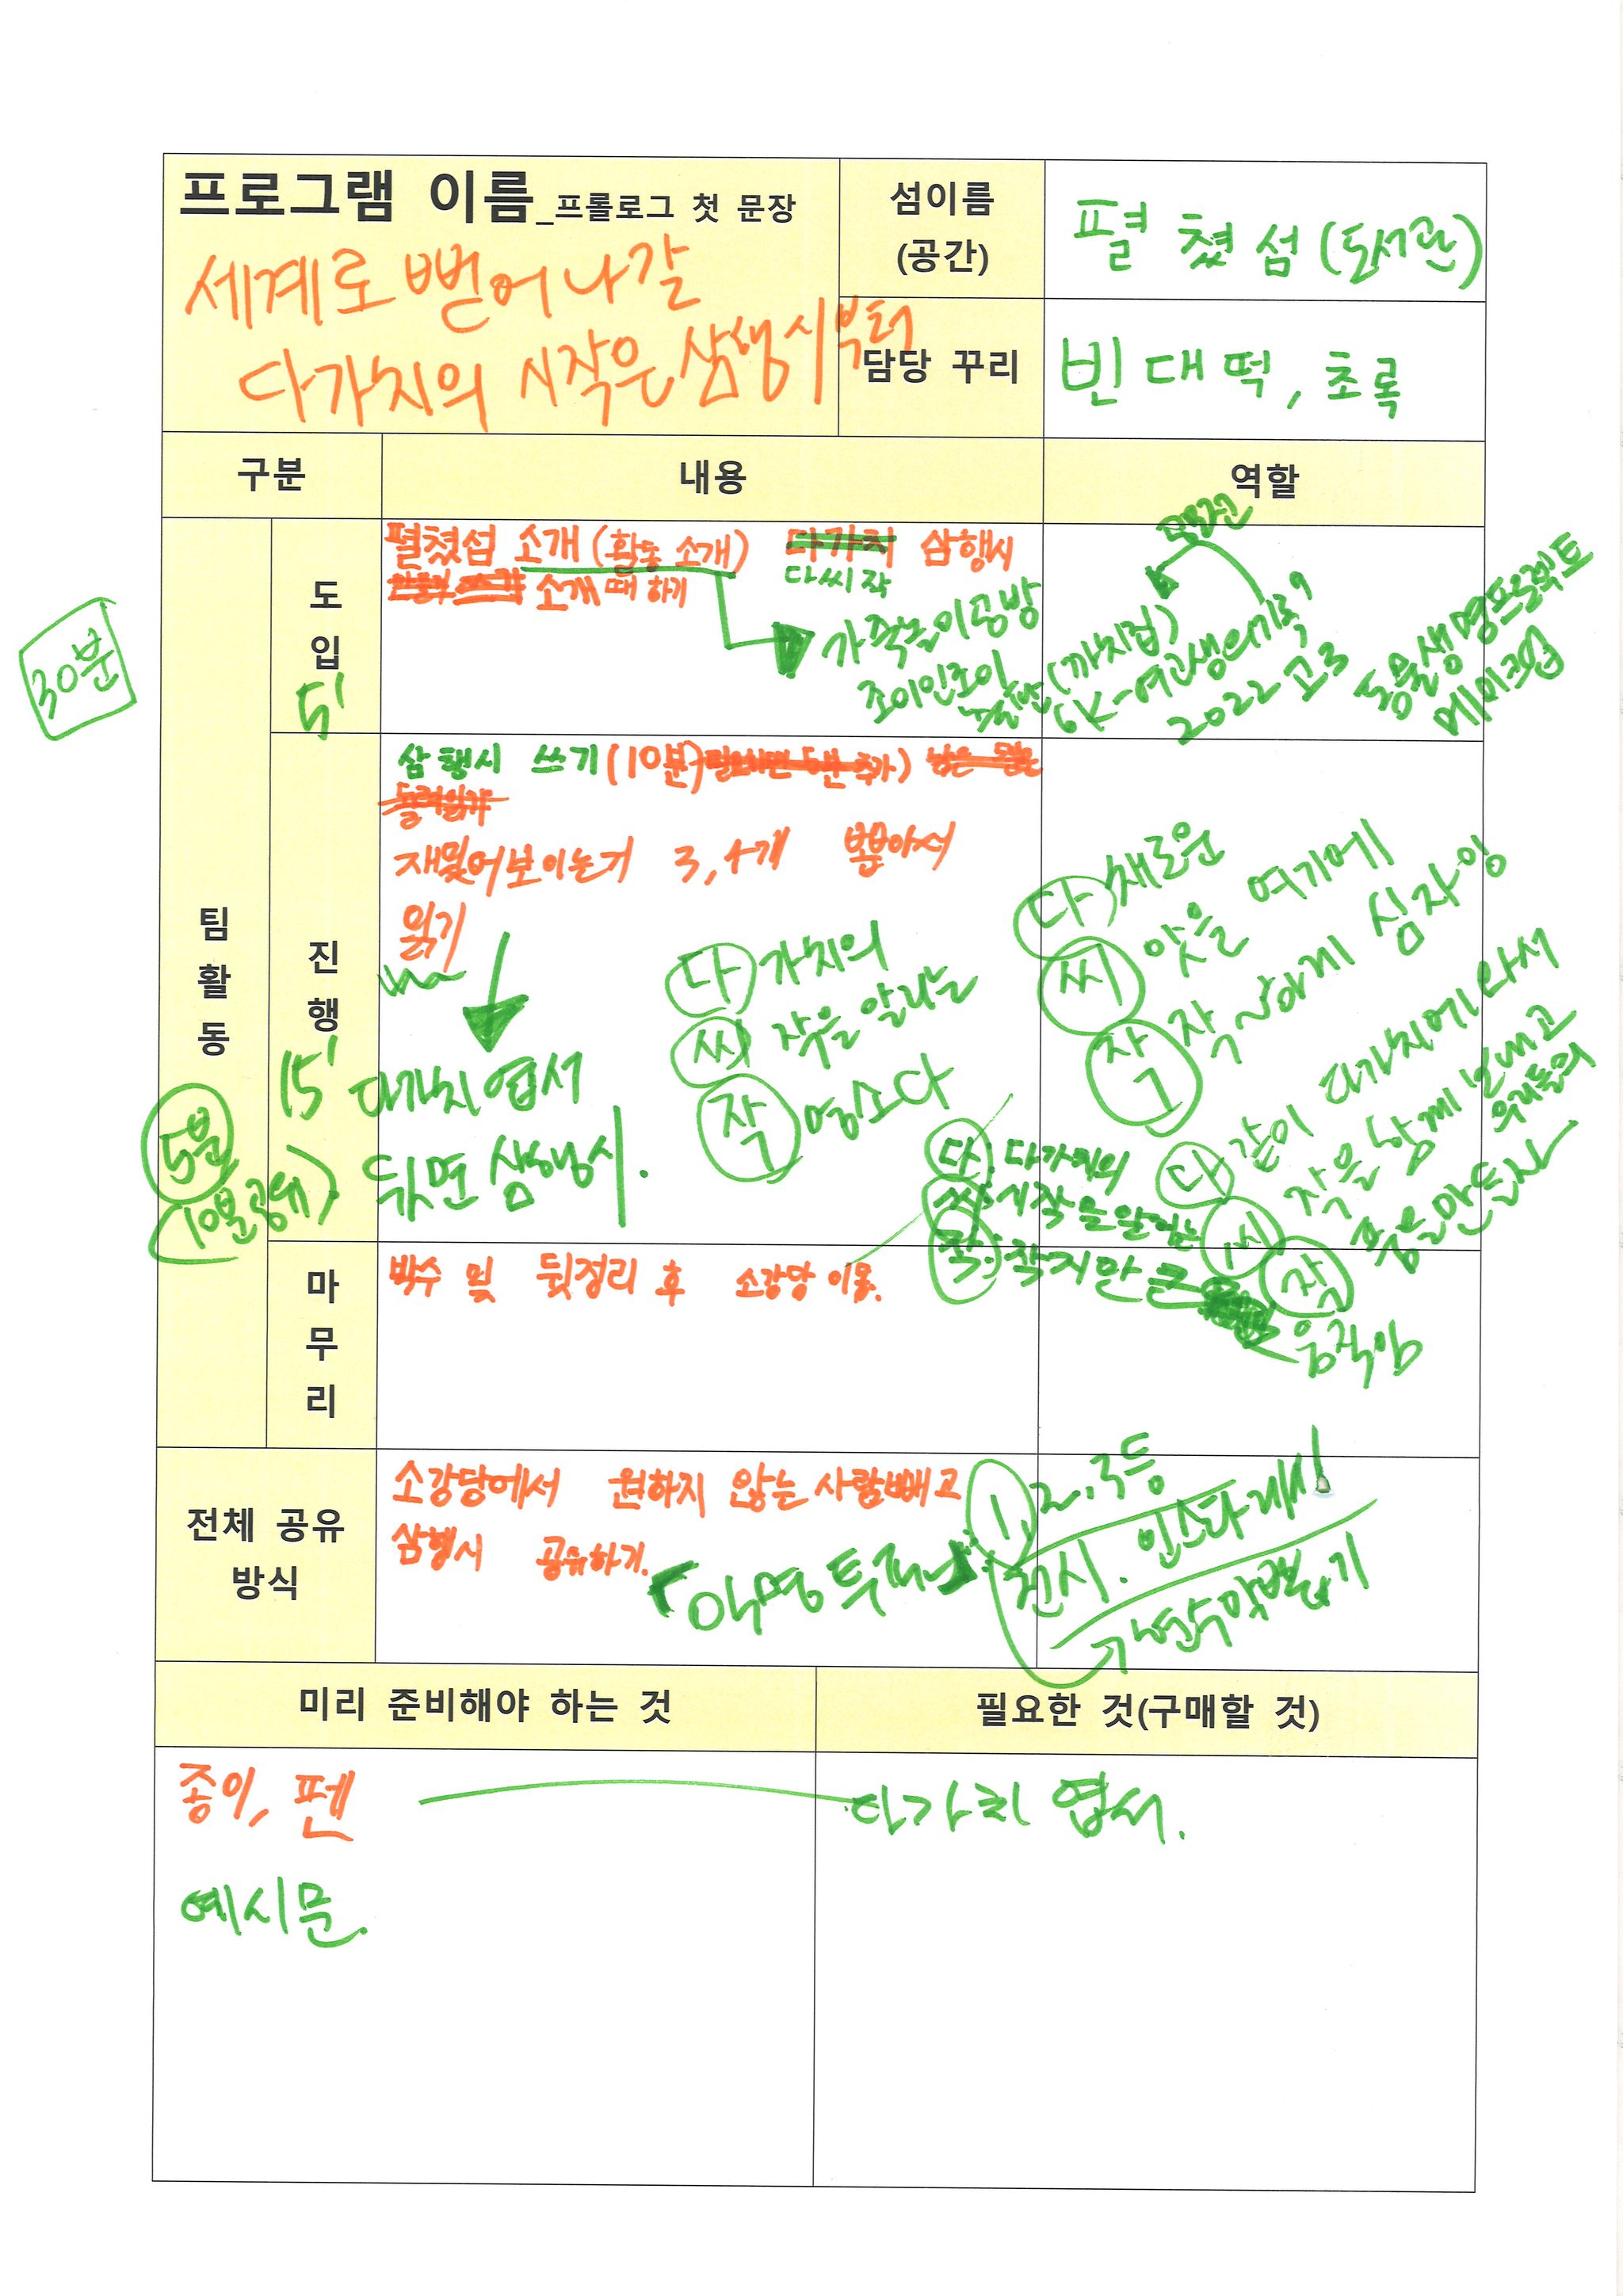 프로그램 이름_프롤로그 첫 문장
세계로 뻗어나갈
다가치의 시작은 삼행시부터
섬이름
(공간)
펼쳤섬(도서관)
담당 꾸리
빈대떡, 초록
구분
내용
역할
30분
팀활동
5분
(10분 공유)
도입
5'
펼쳤섬 소개(활동 소개) 다가치 삼행시
다씨작
소개 때 하기
가죽놀이공방
조이인조이
(까치집)
K-여고생의 기록,
2022 고3
동물생명프로젝트
메이크업
진행
15'
삼행시 쓰기(10분)
재밌어보이는거 3,4개 뽑아서
읽기
다가치 엽서
뒷면 삼행시.
다가치의
씨작을 알리는
작명소다
다채로운
씨앗을 여기에
작작하게 심자잉
다: 다가치의
씨: 시작을 알리는
작: 작지만 큰
움직임
다같이 다가치에 와서
씨작을 함께 보내고
우리들의
작품을 만든자
마무리
박수 및 뒷정리 후 소강당 이동.
전체 공유
방식
소강당에서 원하지 않는 사람빼고
삼행시 공유하기.
「익명투표」
1, 2, 3등
전시. 인스타 게시!
미리 준비해야 하는 것
필요한 것(구매할 것)
종이, 펜
다가치 엽서.
예시문.